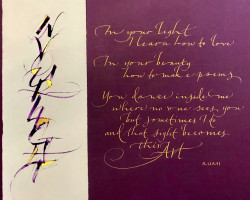 In your light
I learn how to love
In your beauty
how to make poems.
You dance inside me
where no one sees you
but sometimes I do
and that sight becomes
this
Art
RUMI